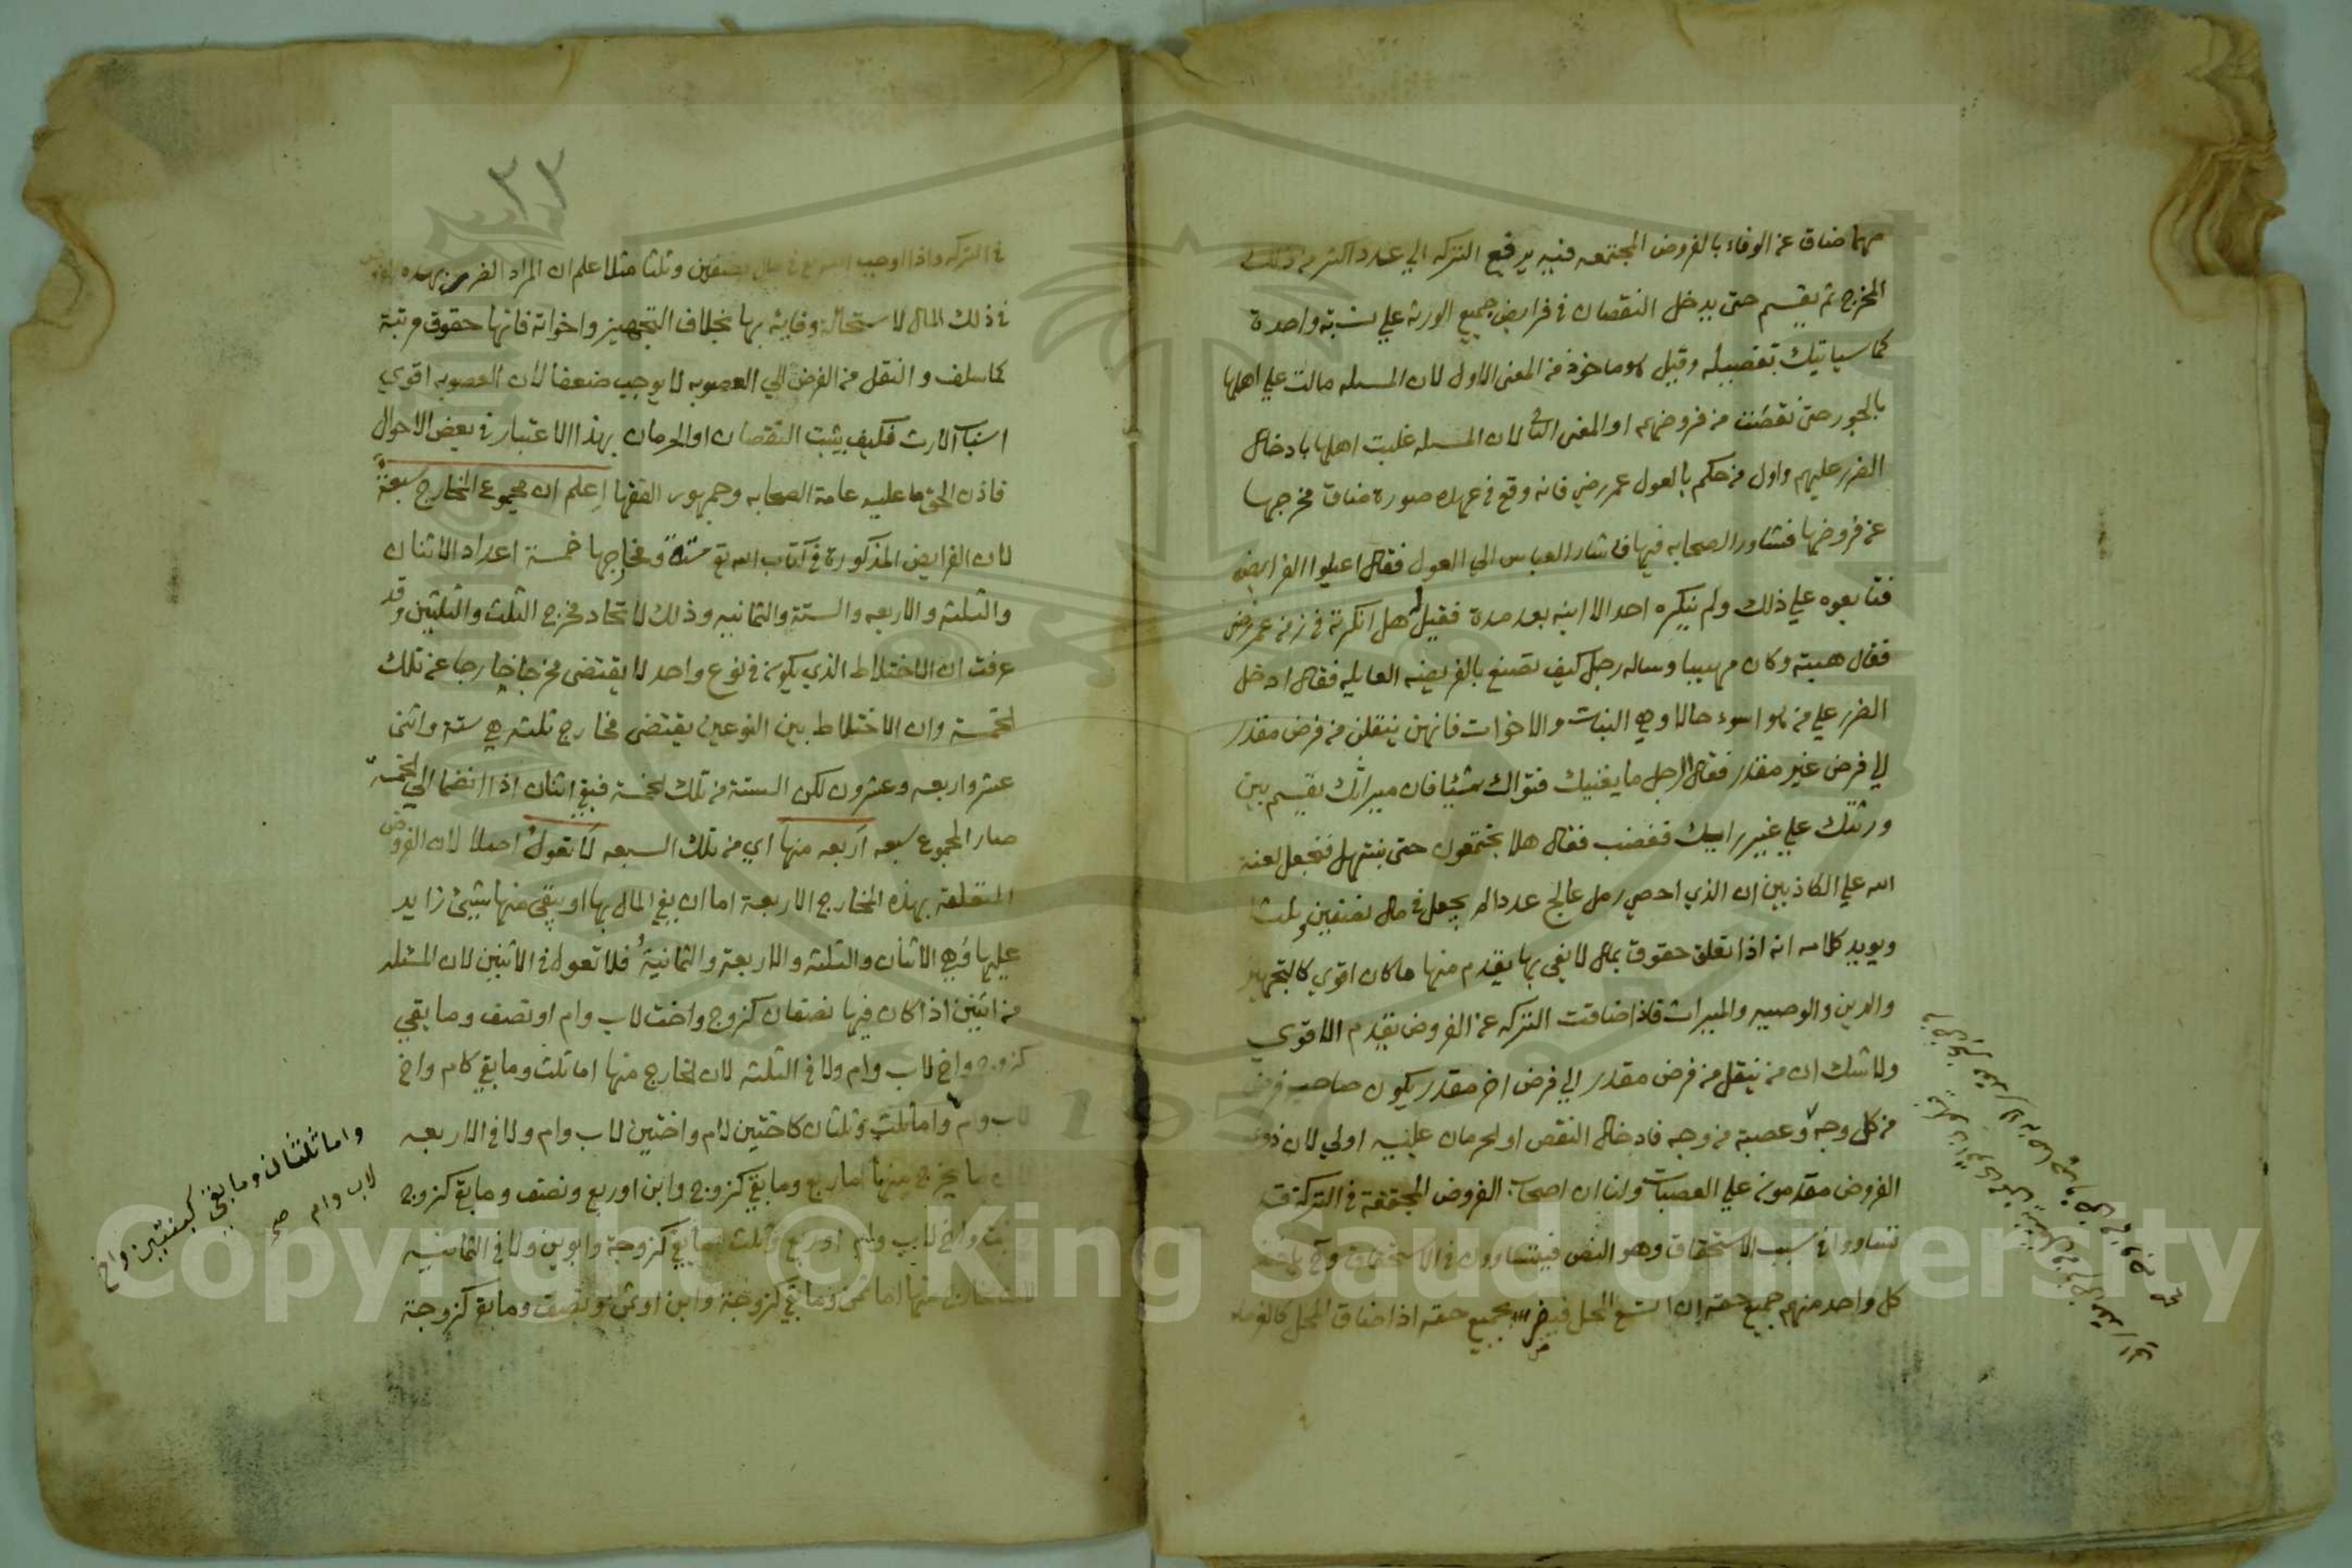 مهما ضاق عن الوفاء بالفروض المجتمعه فيه يرفع التركه الي عدد اكثر من ذلك
المخرج ثم يقسم حتى يدخل النقصان في فرايض جميع الورثه علي نسبة واحدة
كما سياتيك تفصيله وقيل هو ماخوذ من المعنى الاول لان المسله مالت علي اهلها
بالجور حتى نقصت من فروضهم او المعنى الثاني لان المسله غلبت اهلها بادخال
الضرر عليهم واول من حكم بالعول عمر رضي فانه وقع في عهده صورة ضاق مخرجها
عن فروضها فشاور الصحابه فيها فاشار العباس الي العول فقال اعيلوا الفرايض
فتابعوه علي ذلك ولم ينكره احد الا ابنه بعد مدة فقيل له هل انكرته في زمن عمر رضي
فقال هبته وكان مهيبا وساله رجل كيف تصنع بالفريضه العايله فقال ادخل
الضرر علي من هو اسوء حالا وهي البنات والاخوات فانهن ينقلن من فرض مقدر
الي فرض غير مقدر فقال الرجل ما يغنيك فتواك شيئا فان ميراثك يقسم بين
ورثتك علي غير رايك فغضب فقال هلا تجتمعون حتى نبتهل فنجعل لعنة
الله علي الكاذبين ان الذي احصي رمل عالج عددا لم يجعل في مال نصفين وثلثا
ويويد كلامه انه اذا تعلق حقوق بمال لا يفي بها يقدم منها ما كان اقوي كالتجهيز
والدين والوصيه والميراث فاذا ضاقت التركه عن الفروض يقدم الاقوي
ولا شك ان من ينقل من فرض مقدر الي فرض اخر مقدر يكون صاحب فرض
من كل وجه وعصبة من وجه فادخال النقص او الحرمان عليه اولي لان ذوي
الفروض مقدمون علي العصبات ولنا ان اصحاب الفروض المجتمعة في التركة قد
تساووا في سبب الاستحقاق وهو النص فيتساوون في الاستحقاق وح ياخذ
كل واحد منهم جميع حقه ان اتسع المحل فيضرب بجميع حقه اذا ضاق المحل كالغرماء
٢٢
في التركه واذا اوجب الله تع في مال نصفين وثلثا مثلا علم ان المراد الضرب بهذه الفروض
في ذلك المال لاستحالة وفايه بها بخلاف التجهيز واخواته فانها حقوق مرتبة
كما سلف والنقل من الفرض الي العصوبه لا يوجب ضعفا لان العصوبه اقوي
اسباب الارث فكيف يثبت النقصان او الحرمان بهذا الاعتبار في بعض الاحوال
فاذن الحق ما عليه عامة الصحابه وجمهور الفقها اعلم ان مجموع المخارج سبعة
لان الفرايض المذكورة في كتاب الله تع ستة ومخارجها خمسة اعداد الاثنان
والثلثه والاربعه والستة والثمانيه وذلك لاتحاد مخرج الثلث والثلثين وقد
عرفت ان الاختلاط الذي يكون في نوع واحد لا يقتضى مخرجا خارجا عن تلك
الخمسة وان الاختلاط بين النوعين يقتضى مخارج ثلثه هي ستة واثنى
عشر واربعه وعشرون لكن الستة من تلك الخمسة فبقي اثنان اذا انضما الي الخمسة
صار المجموع سبعه اربعه منها اي من تلك السبعه لا تعول اصلا لان الفروض
المتعلقة بهذه المخارج الاربعة اما ان يفي المال بها او يبقى منها شيئ زايد
عليها وهي الاثنان والثلثه والاربعة والثمانية فلا تعول في الاثنين لان المسئله
من اثنين اذا كان فيها نصفان كزوج واخت لاب وام او نصف وما بقي
كزوج واخ لاب وام ولا في الثلثه لان الخارج منها اما ثلث وما بقي كام واخ
لاب وام واما ثلث وثلثان كاختين لام واختين لاب وام ولا في الاربعه
لان ما يخرج منها اما ربع وما بقي كزوج وابن او ربع ونصف وما بقي كزوج
وبنت واخ لاب وام او ربع وثلث ما بقي كزوجة وابوين ولا في الثمانيه
لان الخارج منها اما ثمن وما بقي كزوجة وابن او ثمن ونصف وما بقي كزوجة
واما ثلثان وما بقي كبنتين واخ
لاب وام صح
Copyright © King Saud University